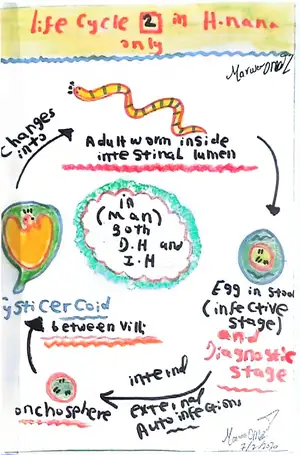 life Cycle 2 in H.nana
only
Adult worm inside
intestinal lumen
Changes
into
in
(man)
Both
D.H and
I.H
Egg in stool
(infective
stage)
and
Diagnostic
stage
Cysticercoid
between villi
internal
external
Autoinfections
onchosphere
7/2/2020